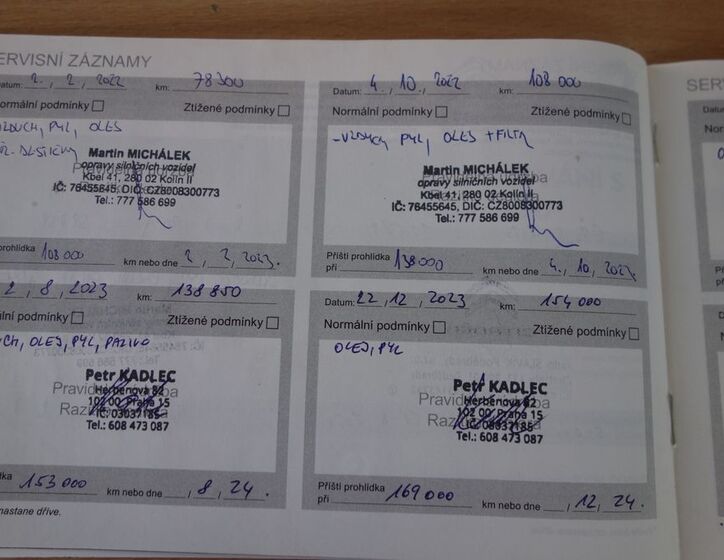 ERVISNÍ ZÁZNAMY
Datum: 2. , 2 , 2022 km: 78 300
Normální podmínky Ztížené podmínky
VZDUCH, PYL, OLEJ
Martin MICHÁLEK
opravy silničních vozidel
Kbel 41, 280 02 Kolín II
IČ: 76455645, DIČ: CZ8008300773
Tel.: 777 586 699
prohlídka 108 000 km nebo dne 2 , 2 , 2023.
Datum: 4. , 10. , 2022 km: 108 000
Normální podmínky Ztížené podmínky
-VZDUCH PYL, OLEJ + FILTR
Pravidelná údržba
Martin MICHÁLEK
opravy silničních vozidel
Kbel 41, 280 02 Kolín II
IČ: 76455645, DIČ: CZ8008300773
Tel.: 777 586 699
Příští prohlídka
při 138 000 km nebo dne 4. , 10 , 2023.
2 , 8 , 2023 km: 138 850
ální podmínky Ztížené podmínky
CH, OLEJ, PYL, PALIVO
Petr KADLEC
Herbenova 82
102 00 Praha 15
IČ: 03037185
Tel.: 608 473 087
dka 153 000 km nebo dne , 8 , 24 .
nastane dříve.
Datum: 22 , 12 , 2023 km: 154 000
Normální podmínky Ztížené podmínky
OLEJ, PYL
Petr KADLEC
Herbenova 82
102 00 Praha 15
IČ: 03037185
Tel.: 608 473 087
Příští prohlídka
při 169 000 km nebo dne , 12 , 24 .
SER